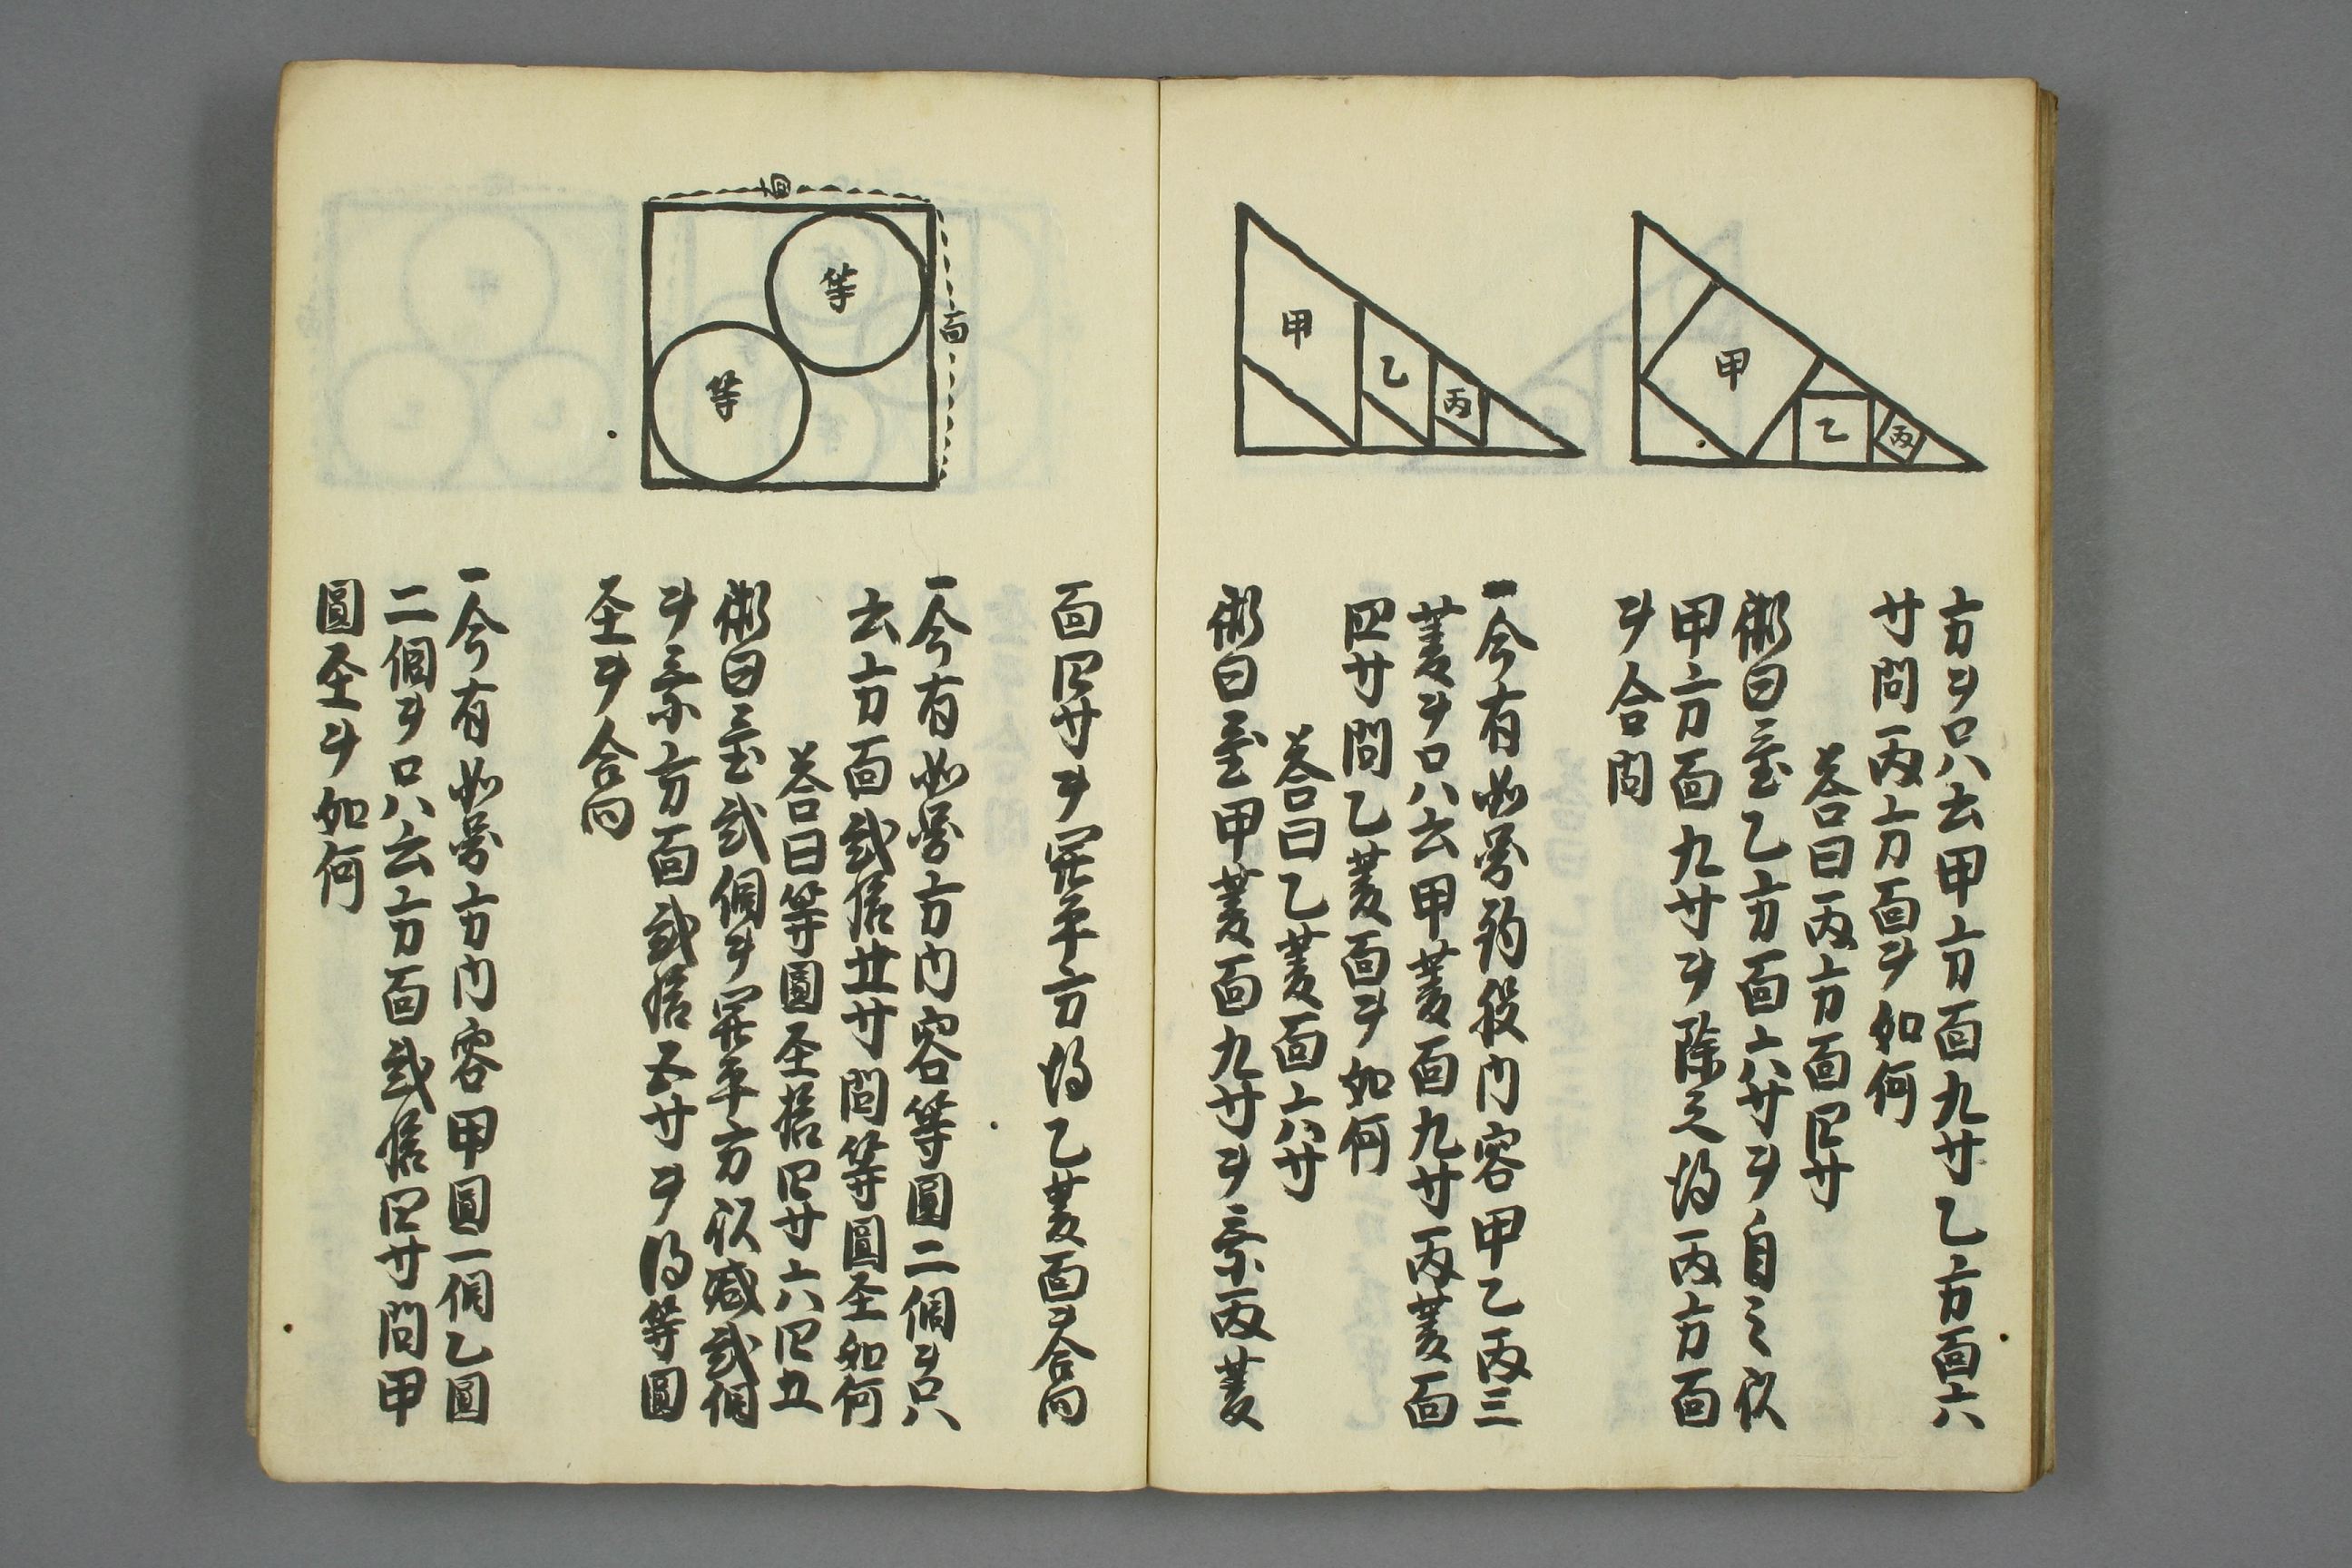 方ヲ只云甲方面九寸乙方面六
寸問丙方面ヲ如何
答曰丙方面四寸
術曰置乙方面六寸ヲ自之以
甲方面九寸ヲ除之得丙方面
ヲ合問
一今有如圖鈎股内容甲乙丙三
菱ヲ只云甲菱面九寸丙菱面
四寸問乙菱面ヲ如何
答曰乙菱面六寸
術曰置甲菱面九寸ヲ乗丙菱
面四寸ヲ開平方得乙菱面ヲ合問
一今有如圖方内容等圓二個ヲ只
云方面弐拾五寸問等圓圣如何
答曰等圓圣拾四寸六四五
術曰置弐個ヲ開平方以减弐個
ヲ乗方面弐拾五寸ヲ得等圓
圣ヲ合問
一今有如圖方内容甲圓一個乙圓
二個ヲ只云方面弐拾四寸問甲
圓圣ヲ如何
甲
乙
丙
甲
乙
丙
面
面
等
等